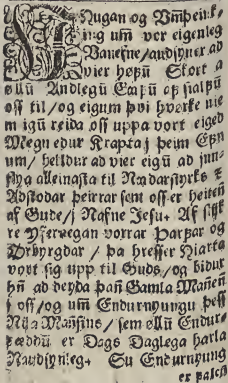 Hugan og Vmþeink/
ing um̃ vor eigenleg
Vanefne/ audsyner ad
vier hofũ Skort a
øllũ Andlegũ Caẕũ
oss til/ og eigum þvi hvørke nie
m igũ reida oss uppa vort eiged
Megn edur Kraptaf þeim
um/ helldur ad vier eigũ ad
flya alleinasta til Nædarstyrks &
Adstodar þeirrar sem oss er heiten
af Gude/ J Nafne Jesu. Af
re Yferveigan vorrar Þarfar og
Ørbyrgdar/ þa hresser Hiarta
vort sig upp til Guds/ og bidur
hñ ad deyda þañ Gamla Mañeñ
i oss/ og um̃ Endurnyungu þess
Nyia Mañsins/ sem øllũ Endur-
fæddũ er Dags Daglega harla
Naudsynleg. Su Endurnyung
er